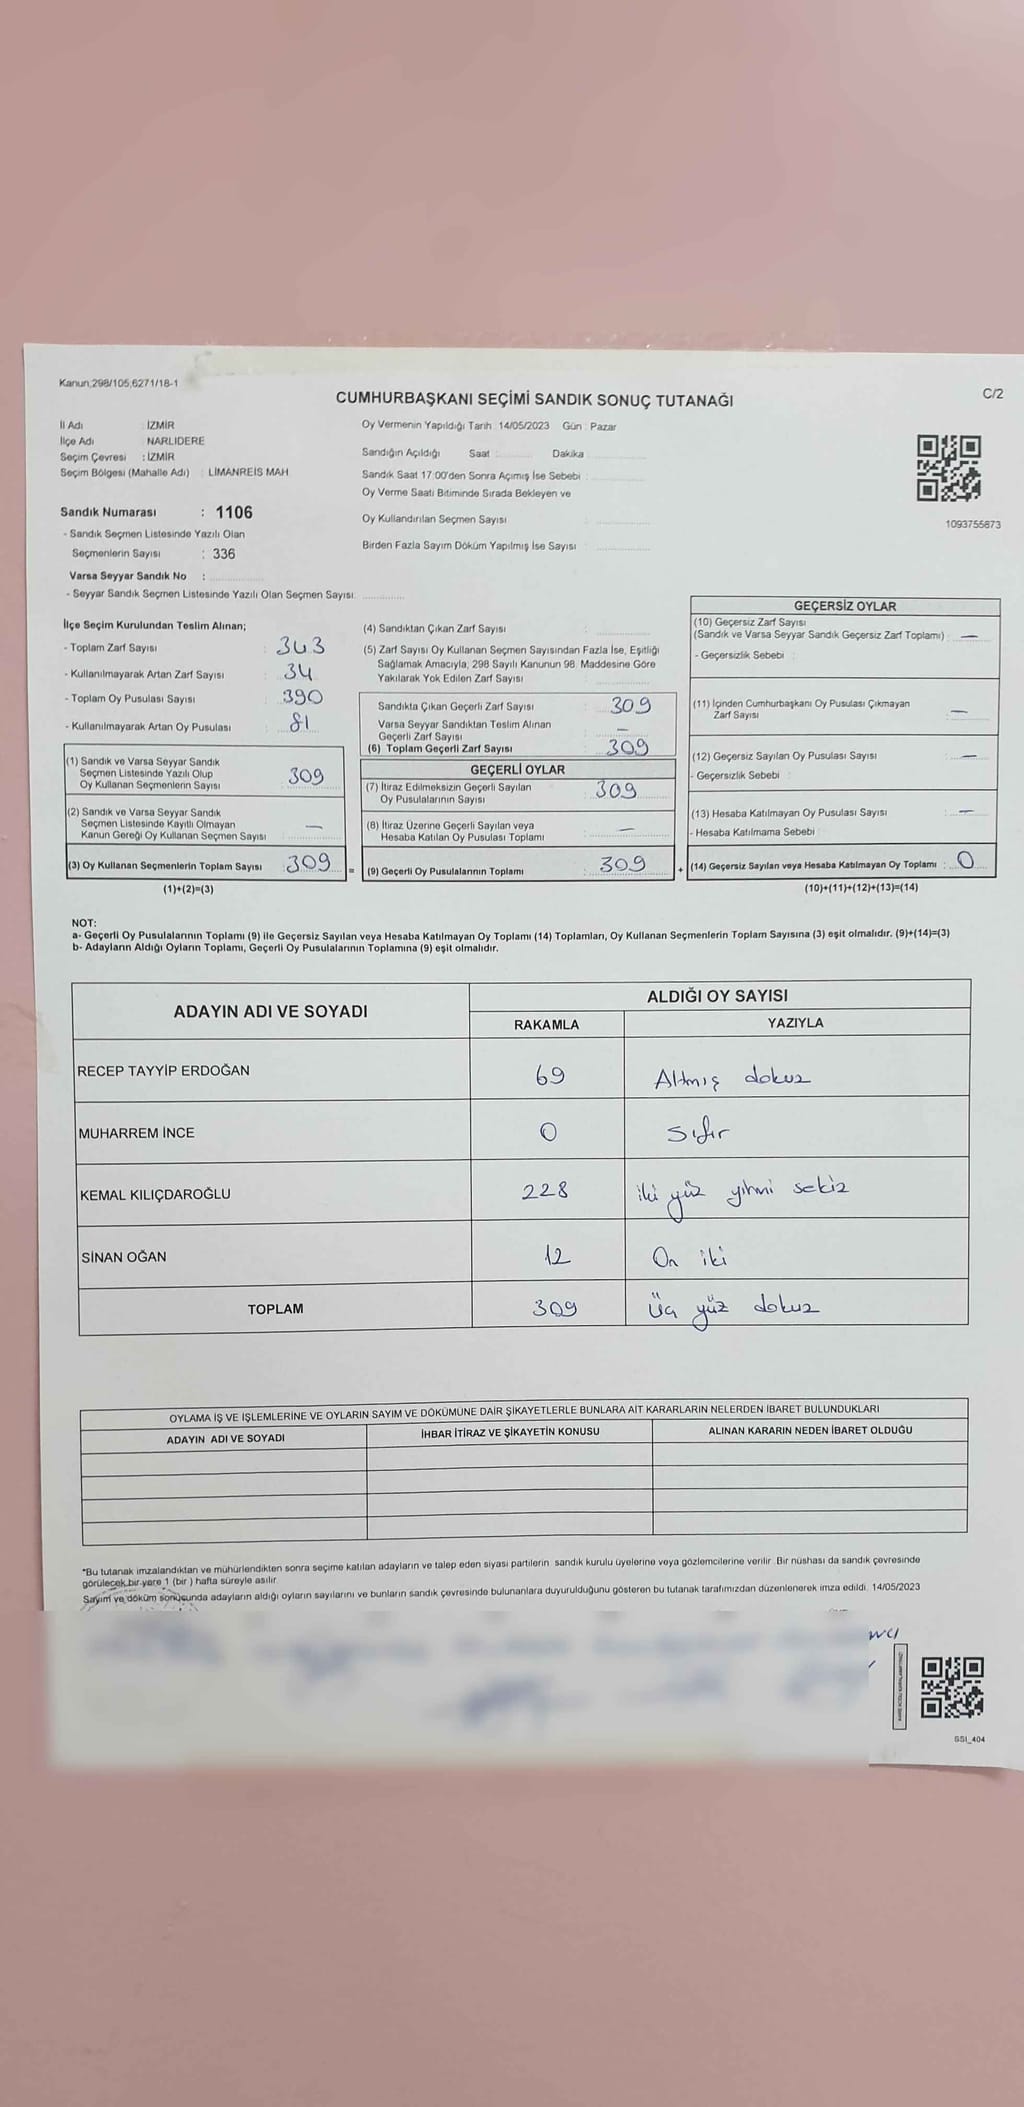 Kanun;298/105,6271/18-1
C/2
CUMHURBAŞKANI SEÇİMİ SANDIK SONUÇ TUTANAĞI
İl Adı : İZMİR
İlçe Adı : NARLIDERE
Seçim Çevresi : İZMİR
Seçim Bölgesi (Mahalle Adı) : LİMANREİS MAH.
Oy Vermenin Yapıldığı Tarih : 14/05/2023 Gün : Pazar
Sandığın Açıldığı Saat : Dakika :
Sandık Saat 17:00'den Sonra Açımış İse Sebebi :
Oy Verme Saati Bitiminde Sırada Bekleyen ve
Oy Kullandırılan Seçmen Sayısı :
Birden Fazla Sayım Döküm Yapılmış İse Sayısı :
1093755873
Sandık Numarası : 1106
- Sandık Seçmen Listesinde Yazılı Olan
Seçmenlerin Sayısı : 336
Varsa Seyyar Sandık No :
- Seyyar Sandık Seçmen Listesinde Yazılı Olan Seçmen Sayısı:
İlçe Seçim Kurulundan Teslim Alınan;
- Toplam Zarf Sayısı : 343
- Kullanılmayarak Artan Zarf Sayısı : 34
- Toplam Oy Pusulası Sayısı : 390
- Kullanılmayarak Artan Oy Pusulası : 81
(1) Sandık ve Varsa Seyyar Sandık
Seçmen Listesinde Yazılı Olup
Oy Kullanan Seçmenlerin Sayısı : 309
(2) Sandık ve Varsa Seyyar Sandık
Seçmen Listesinde Kayıtlı Olmayan
Kanun Gereği Oy Kullanan Seçmen Sayısı : —
(3) Oy Kullanan Seçmenlerin Toplam Sayısı : 309
(1)+(2)=(3)
(4) Sandıktan Çıkan Zarf Sayısı :
(5) Zarf Sayısı Oy Kullanan Seçmen Sayısından Fazla İse, Eşitliği
Sağlamak Amacıyla, 298 Sayılı Kanunun 98. Maddesine Göre
Yakılarak Yok Edilen Zarf Sayısı :
Sandıkta Çıkan Geçerli Zarf Sayısı : 309
Varsa Seyyar Sandıktan Teslim Alınan
Geçerli Zarf Sayısı : —
(6) Toplam Geçerli Zarf Sayısı : 309
GEÇERLİ OYLAR
(7) İtiraz Edilmeksizin Geçerli Sayılan
Oy Pusulalarının Sayısı : 309
(8) İtiraz Üzerine Geçerli Sayılan veya
Hesaba Katılan Oy Pusulası Toplamı : —
= (9) Geçerli Oy Pusulalarının Toplamı : 309
GEÇERSİZ OYLAR
(10) Geçersiz Zarf Sayısı
(Sandık ve Varsa Seyyar Sandık Geçersiz Zarf Toplamı) : —
- Geçersizlik Sebebi :
(11) İçinden Cumhurbaşkanı Oy Pusulası Çıkmayan
Zarf Sayısı : —
(12) Geçersiz Sayılan Oy Pusulası Sayısı : —
- Geçersizlik Sebebi :
(13) Hesaba Katılmayan Oy Pusulası Sayısı : —
- Hesaba Katılmama Sebebi :
+ (14) Geçersiz Sayılan veya Hesaba Katılmayan Oy Toplamı : 0
(10)+(11)+(12)+(13)=(14)
NOT:
a- Geçerli Oy Pusulalarının Toplamı (9) ile Geçersiz Sayılan veya Hesaba Katılmayan Oy Toplamı (14) Toplamları, Oy Kullanan Seçmenlerin Toplam Sayısına (3) eşit olmalıdır. (9)+(14)=(3)
b- Adayların Aldığı Oyların Toplamı, Geçerli Oy Pusulalarının Toplamına (9) eşit olmalıdır.
ADAYIN ADI VE SOYADI
ALDIĞI OY SAYISI
RAKAMLA YAZIYLA
RECEP TAYYİP ERDOĞAN 69 Altmış dokuz
MUHARREM İNCE 0 Sıfır
KEMAL KILIÇDAROĞLU 228 iki yüz yirmi sekiz
SİNAN OĞAN 12 On iki
TOPLAM 309 Üç yüz dokuz
OYLAMA İŞ VE İŞLEMLERİNE VE OYLARIN SAYIM VE DÖKÜMÜNE DAİR ŞİKAYETLERLE BUNLARA AİT KARARLARIN NELERDEN İBARET BULUNDUKLARI
ADAYIN ADI VE SOYADI İHBAR İTİRAZ VE ŞİKAYETİN KONUSU ALINAN KARARIN NEDEN İBARET OLDUĞU
*Bu tutanak imzalandıktan ve mühürlendikten sonra seçime katılan adayların ve talep eden siyasi partilerin sandık kurulu üyelerine veya gözlemcilerine verilir. Bir nüshası da sandık çevresinde
görülecek bir yere 1 (bir ) hafta süreyle asılır.
Sayım ve döküm sonucunda adayların aldığı oyların sayılarını ve bunların sandık çevresinde bulunanlara duyurulduğunu gösteren bu tutanak tarafımızdan düzenlenerek imza edildi. 14/05/2023
SSI_404